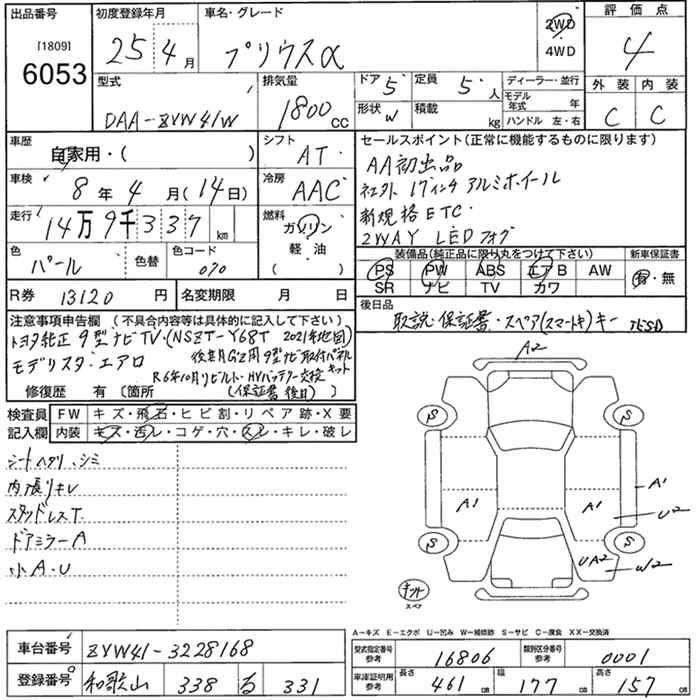 出品番号 初度登録年月 車名・グレード 2WD 評価点
[1809] 25 4月 プリウスα 4WD 4
6053
型式 排気量 ドア 5 定員 5人 ディーラー・並行 外装 内装
DAA-ZVW41W 1800cc 形状 W 積載 kg モデル年式 年 C C
ハンドル 左・右
車歴 シフト セールスポイント(正常に機能するものに限ります)
自家用・( ) AT AA初出品
車検 冷房 社外17インチアルミホイール
8年 4月(14日) AAC 新規格ETC
走行 燃料 2WAY LEDフォグ
14万9千337km ガソリン
色 色替 色コード 軽油 装備品(純正品に限り丸をつけて下さい) 新車保証書
パール 070 ( ) PS PW ABS エアB AW 有・無
SR ナビ TV カワ
R券 13120円 名変期限 月 日 後日品
取説・保証書・スペア(スマートキ)キー
注意事項申告欄 (不具合内容等は具体的に記入して下さい)
トヨタ純正9型ナビTV・(NSZT-Y68T 2021年地図)
モデリスタ・エアロ 後期G'Z用9型ナビ取付パネルキット
R6年10月リビルト・HVバッテリー交換
修復歴 有 〔箇所 (保証書後日)
検査員 FW キズ・飛石・ヒビ割・リペア跡・X要
記入欄 内装 キズ・汚レ・コゲ・穴・スレ・キレ・破レ
シートヘタリ、シミ
内張りキレ
スタッドレスT.
ドアミラーA
小A・U
A2
S S
A1 A1 A1
U2
S S
UA2 W2
キット
スペア
A-キズ E-エクボ U-凹み W-補修跡 S-サビ C-腐食 XX-交換済
車台番号 ZVW41-3228168
型式指定番号 参考 16806 類別区分番号 参考 0001
登録番号 和歌山 338 る 331
車庫証明用 参考 長さ 461cm 幅 177cm 高さ 157cm